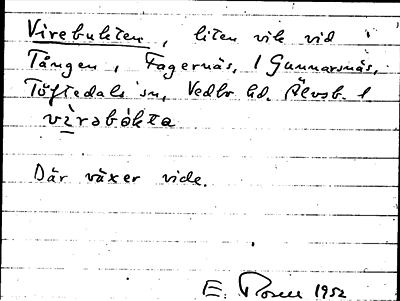 Virebukten, liten vik vid
Tången, Fagernäs, l Gunnarsnäs,
Töftedals sn, Vedbo hd. Älvsb. l
virəbòkta
Där växer vide.
E. Rosell 1952